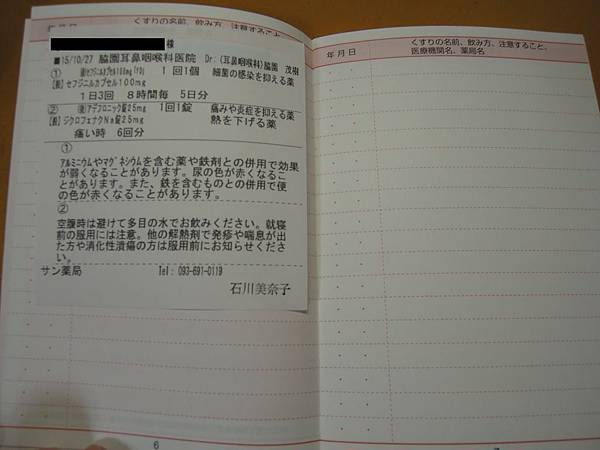 くすりの名前、飲み方、注意すること、
様
■15/10/27 脇園耳鼻咽喉科医院 Dr:(耳鼻咽喉科)脇園 茂樹
① セフジニルカプセル100mg 1回1個 細菌の感染を抑える薬
セフジニルカプセル100mg
1日3回 8時間毎 5日分
② アデフロニック錠25mg 1回1錠 痛みや炎症を抑える薬
ジクロフェナクNa錠25mg 熱を下げる薬
痛い時 6回分
①
アルミニウムやマグネシウムを含む薬や鉄剤との併用で効果
が弱くなることがあります。尿の色が赤くなるこ
とがあります。また、鉄を含むものとの併用で便
の色が赤くなることがあります。
②
空腹時は避けて多目の水でお飲みください。就寝
前の服用には注意。他の解熱剤で発疹や喘息が出
た方や消化性潰瘍の方は服用前にお知らせくださ
い。
サン薬局 Tel: 093-691-0119
石川美奈子
6
年月日
くすりの名前、飲み方、注意すること、
医療機関名、薬局名